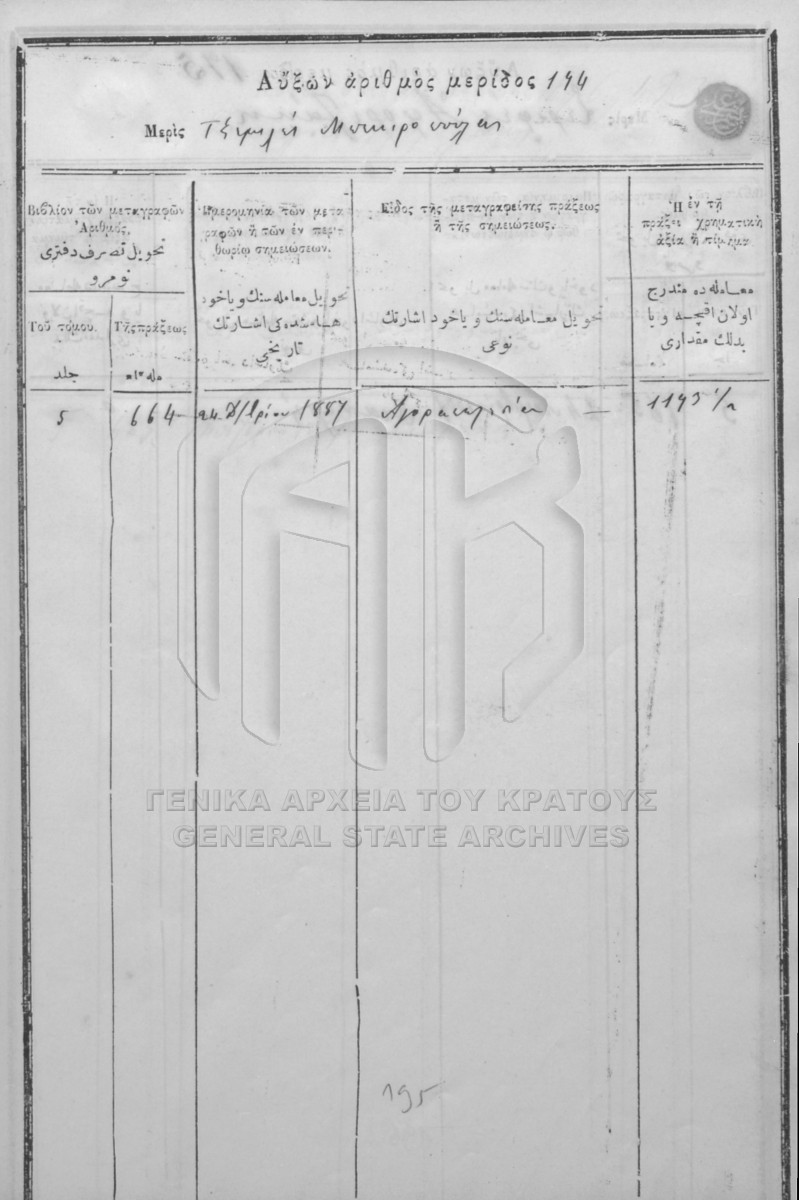 Αὔξων ἀριθμὸς μερίδος 194
Μερὶς
Βιβλίον τῶν μεταγραφῶν
Ἀριθμός.
تحويل تصرف دفترى
نومرو
Τοῦ τόμου.
جلد
Τῆς πράξεως
معامله
Ἡμερομηνία τῶν μετα
γραφῶν ἢ τῶν ἐν περι
θωρίῳ σημειώσεων.
تحويل معامله سنك وياخود
هامشده كى اشارتك
تاريخى
Εἶδος τῆς μεταγραφείσης πράξεως
ἢ τῆς σημειώσεως.
تحويل معامله سنك وياخود اشارتك
نوعى
Ἡ ἐν τῇ
πράξει χρηματικὴ
ἀξία ἢ τίμημα
معامله ده مندرج
اولان اقچه و يا
بدلك مقدارى
5 664 24 1887 —
195
ΓΕΝΙΚΑ ΑΡΧΕΙΑ ΤΟΥ ΚΡΑΤΟΥΣ
GENERAL STATE ARCHIVES